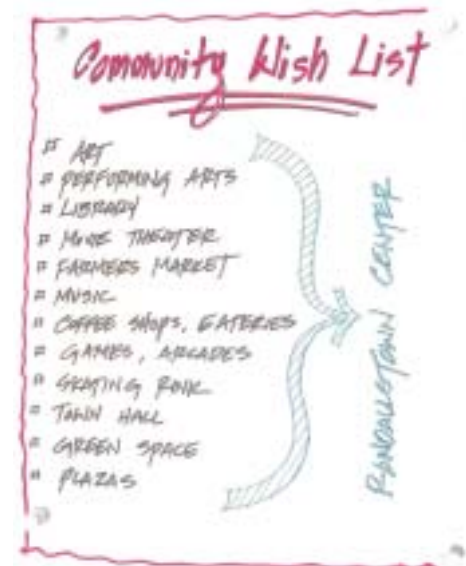 Community Wish List
¤ ART
¤ PERFORMING ARTS
¤ LIBRARY
¤ MOVIE THEATER
¤ FARMERS MARKET
¤ MUSIC
¤ COFFEE SHOPS, EATERIES
¤ GAMES, ARCADES
¤ SKATING RINK
¤ TOWN HALL
¤ GREEN SPACE
¤ PLAZAS
RANDALLSTOWN CENTER